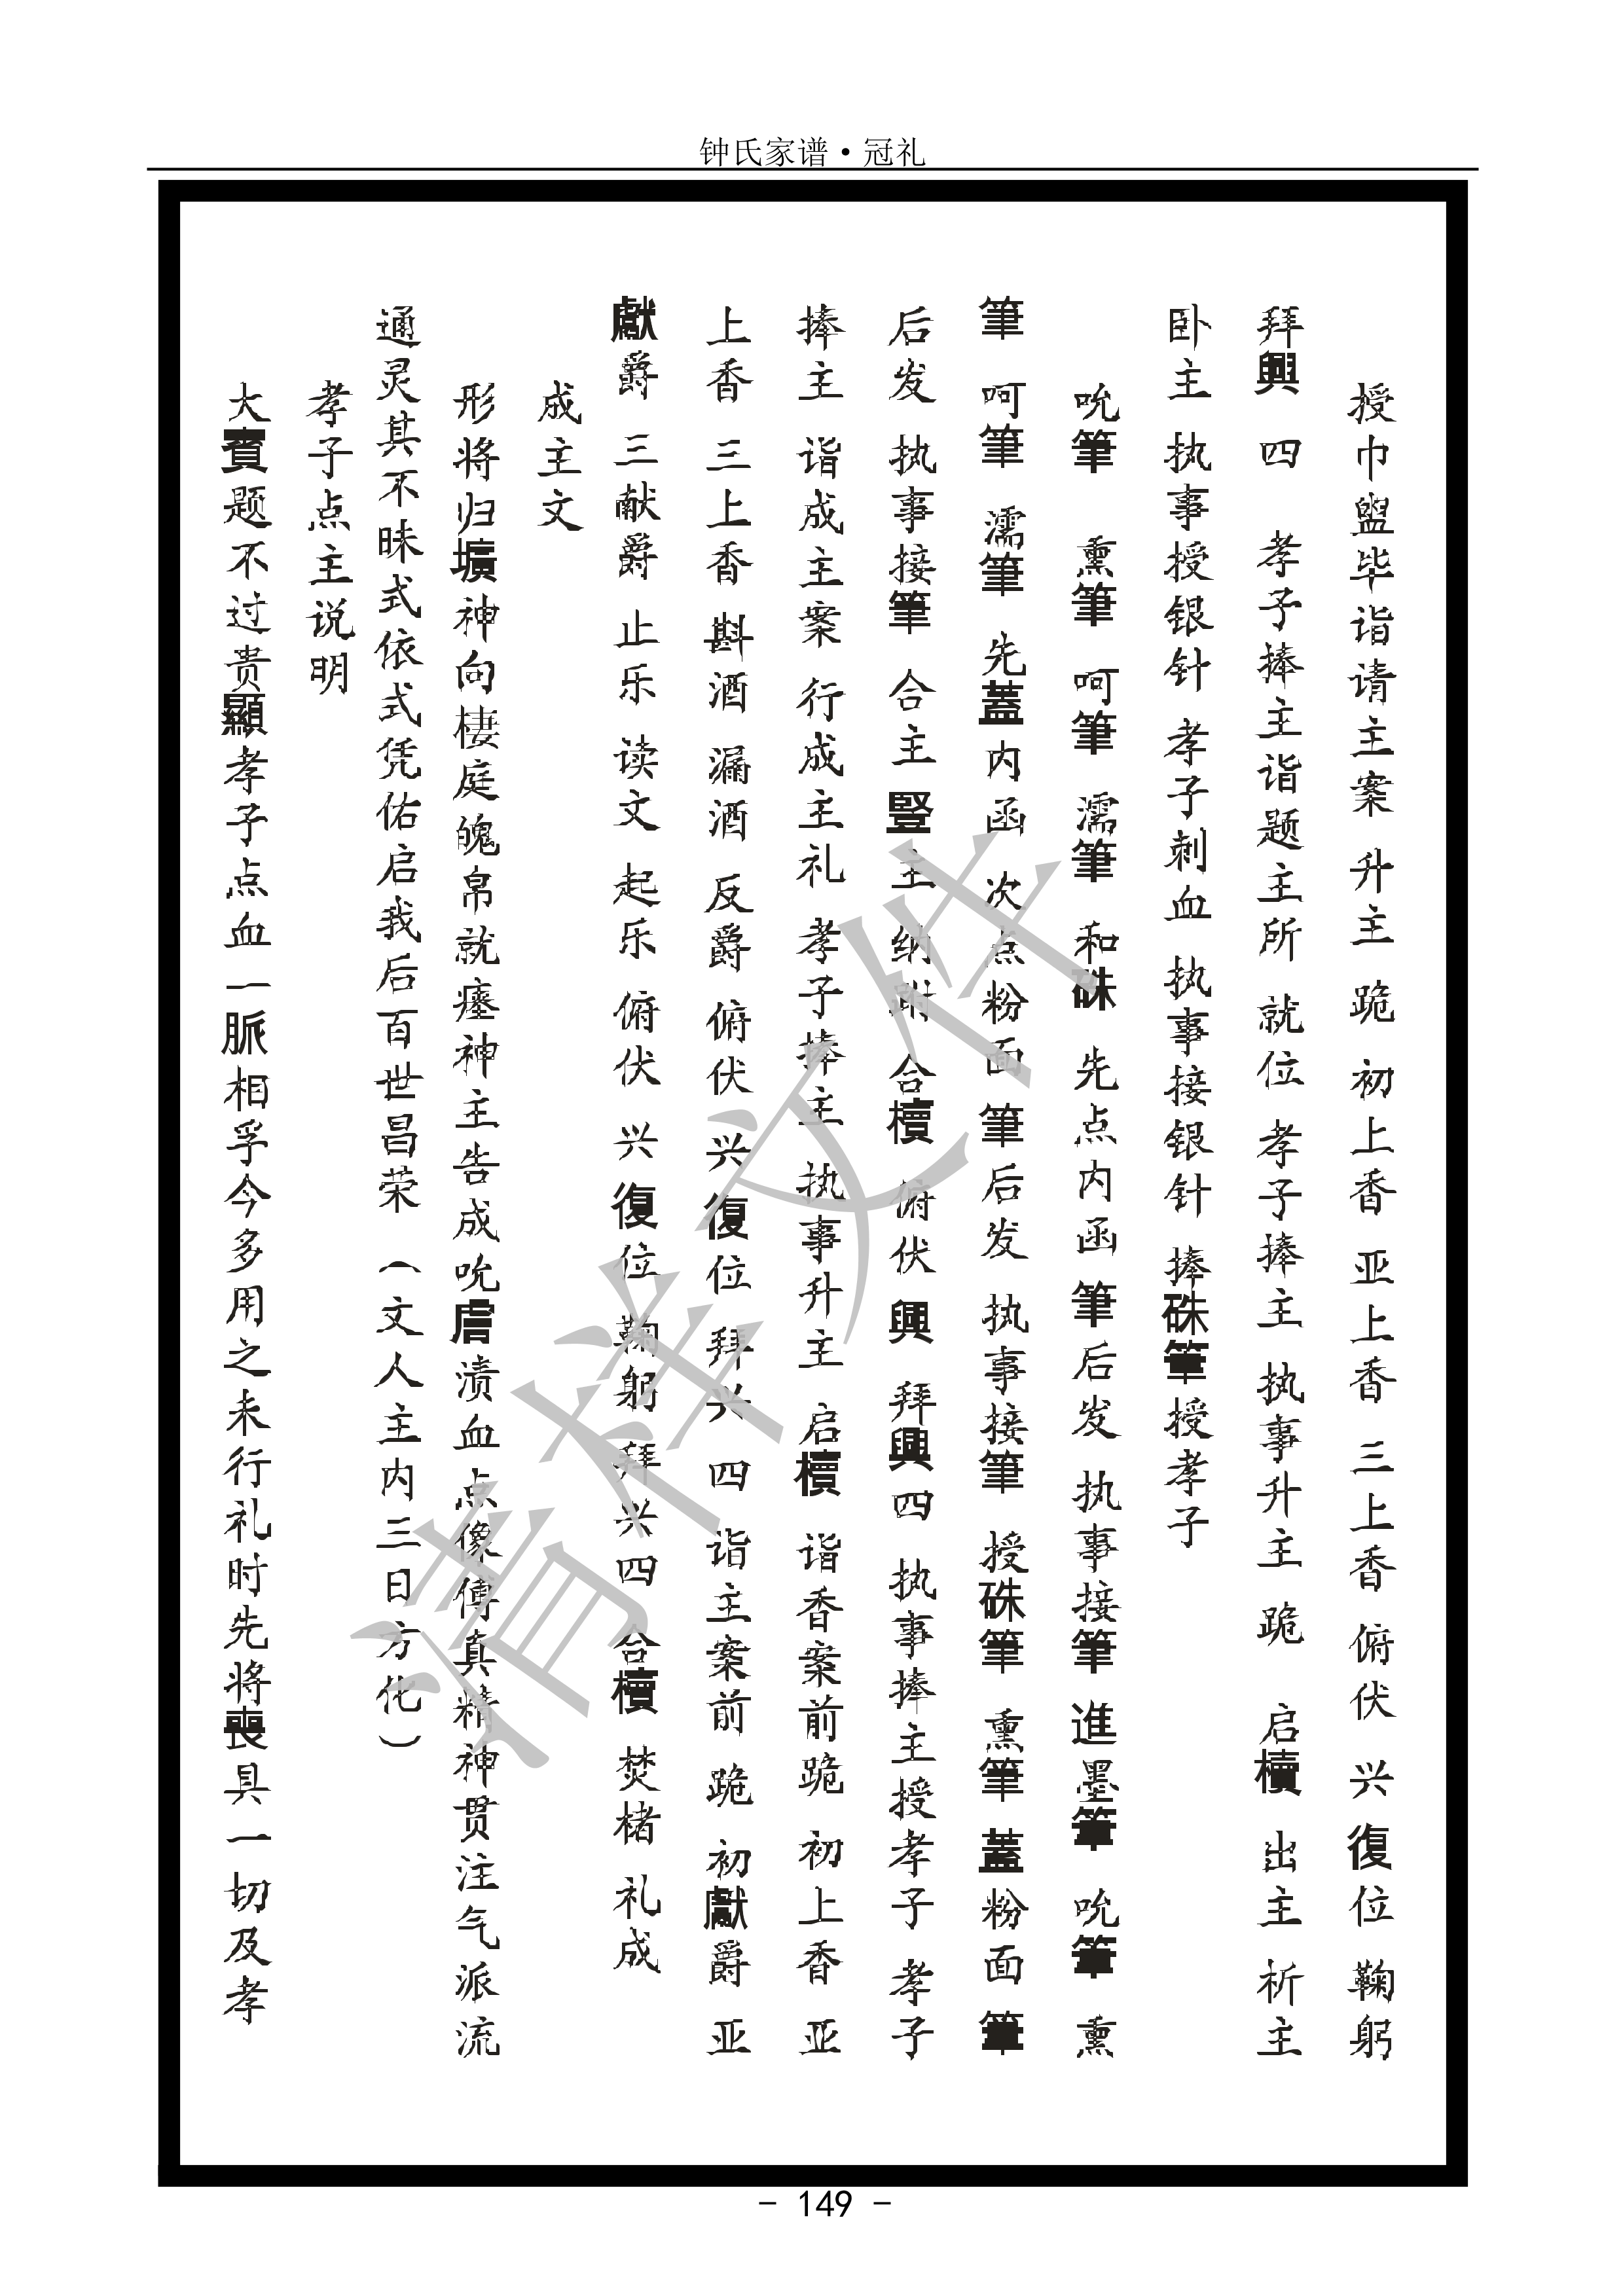 钟氏家谱·冠礼
授巾盥毕诣请主案 升主 跪 初上香 亚上香 三上香 俯伏 兴 復位 鞠躬
拜興 四 孝子捧主诣题主所 就位 孝子捧主 执事升主 跪 启櫝 出主 析主
卧主 执事授银针 孝子刺血 执事接银针 捧硃筆授孝子
吮筆 熏筆 呵筆 濡筆 和硃 先点内函 筆后发 执事接筆 進墨筆 吮筆 熏
筆 呵筆 濡筆 先蓋内函 次点粉面 筆后发 执事接筆 授硃筆 熏筆 蓋粉面 筆
后发 执事接筆 合主 豎主 纳跗 合櫝 俯伏 興 拜興四 执事捧主授孝子 孝子
捧主 诣成主案 行成主礼 孝子捧主 执事升主 启櫝 诣香案前跪 初上香 亚
上香 三上香 斟酒 漏酒 反爵 俯伏 兴 復位 拜兴 四 诣主案前 跪 初獻爵 亚
獻爵 三献爵 止乐 读文 起乐 俯伏 兴 復位 鞠躬 拜兴四 合櫝 焚楮 礼成
成主文
形将归壙神向棲庭魄帛就瘗神主告成吮脣渍血点像傅真精神贯注气派流
通灵其不昧式依式凭佑启我后百世昌荣（文人主内三日方化）
孝子点主说明
大賓题不过贵顯孝子点血一脈相孚今多用之未行礼时先将喪具一切及孝
- 149 -
清样文件